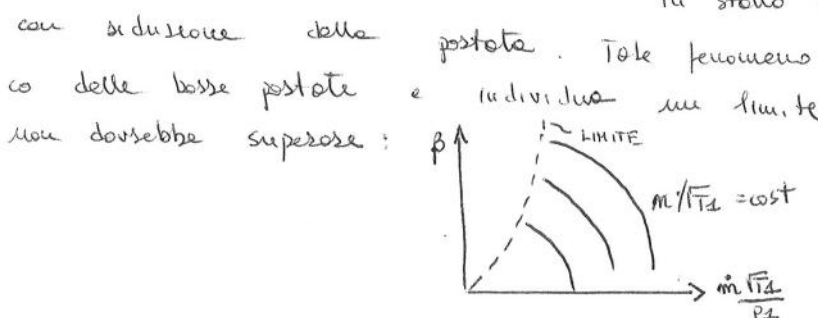 in stallo
con riduzione della portata. Tale fenomeno
co delle basse portate e individua un limite
non dovrebbe superare:
β
LIMITE
m/√T1 = cost
ṁ√T1/P1